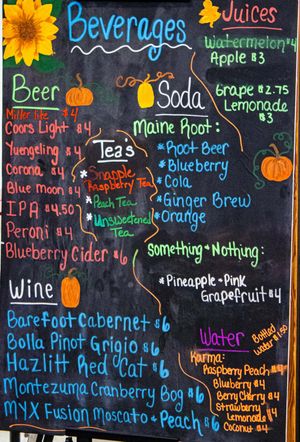 Beverages
Juices
Watermelon $4
Apple $3
Grape $2.75
Lemonade
$3
Beer
Miller lite $4
Coors Light $4
Yuengling $4
Corona $4
Blue moon $4
IPA $4.50
Peroni $4
Blueberry Cider $6
Teas
*Snapple
Raspberry Tea
*Peach Tea
*Unsweetened
Tea
Soda
Maine Root:
*Root Beer
*Blueberry
*Cola
*Ginger Brew
*Orange
Something & Nothing:
*Pineapple & Pink
Grapefruit $4
Wine
Barefoot Cabernet $6
Bolla Pinot Grigio $6
Hazlitt Red Cat $6
Montezuma Cranberry Bog $6
MYX Fusion Moscato & Peach $6
Water
Bottled
Water $1.50
Karma:
Raspberry Peach $4
Blueberry $4
Berry Cherry $4
Strawberry
Lemonade $4
Coconut $4